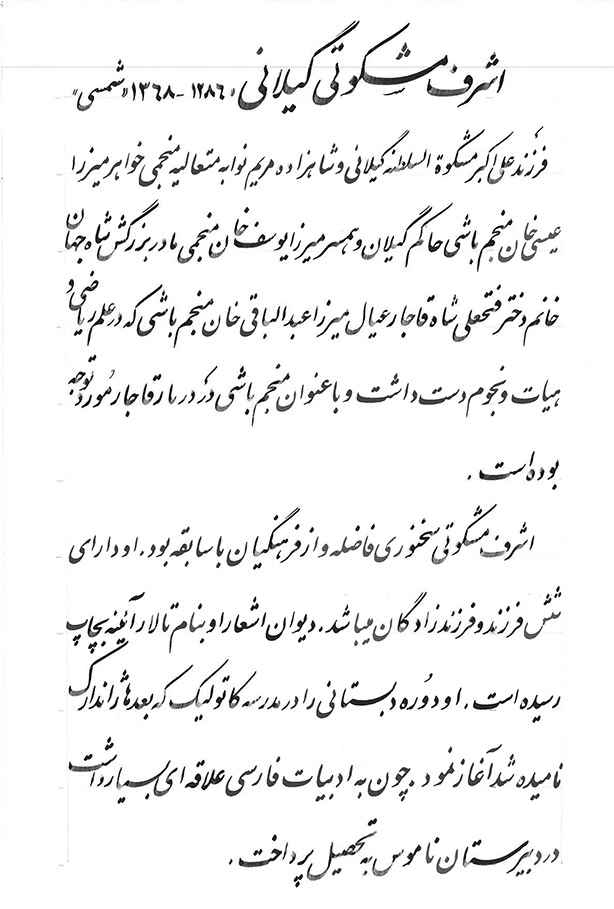 اشرف مشکوتی گیلانی «۱۲۸۶ - ۱۳۶۸ شمسی»
فرزند علی اکبر مشکوة السلطنه گیلانی و شاهزاده مریم نوابه متعالیه منجمی خواهر میرزا
عیسی خان منجم باشی حاکم گیلان و همسر میرزا یوسف خان منجمی مادربزرگش شاه جهان
خانم دختر فتحعلی شاه قاجار عیال میرزا عبدالباقی خان منجم باشی که در علم ریاضی و
هیات و نجوم دست داشت و با عنوان منجم باشی در دربار قاجار مورد توجه
بوده است .
اشرف مشکوتی سخنوری فاضله و از فرهنگیان با سابقه بود . او دارای
شش فرزند و فرزندزادگان میباشد . دیوان اشعار او بنام تالار آئینه بچاپ
رسیده است . او دوره دبستانی را در مدرسه کاتولیک که بعدها ژاندارک
نامیده شد آغاز نمود . چون به ادبیات فارسی علاقه ای بسیار داشت
در دبیرستان ناموس به تحصیل پرداخت .